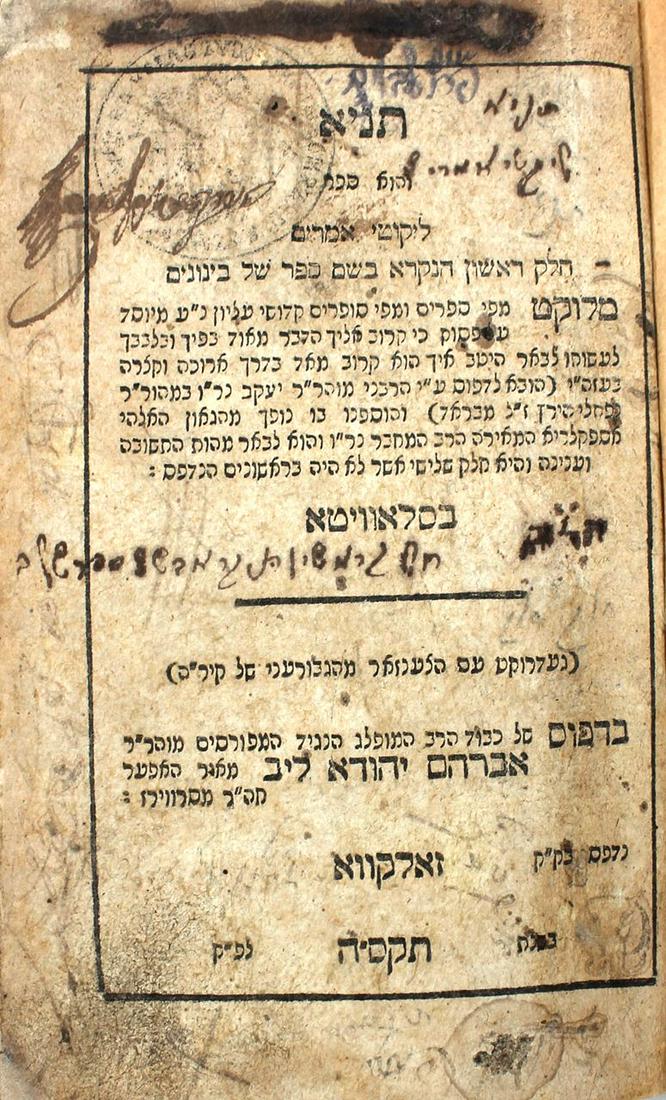 תניא
והוא ספר
ליקוטי אמרים
חלק ראשון הנקרא בשם ספר של בינונים
מלוקט מפי ספרים ומפי סופרים קדושי עליון נ"ע מיוסד
על פסוק כי קרוב אליך הדבר מאוד בפיך ובלבבך
לעשותו לבאר היטב איך הוא קרוב מאד בדרך ארוכה וקצרה
בעזה"י (הובא לדפוס ע"י הרבני מוהר"ר יעקב נר"ו במהור"ר
נפתלי הירץ ז"ל מבראד) והוספנו בו נופך מהגאון האלהי
אספקלריא המאירה הרב המחבר נר"ו והוא לבאר מהות התשובה
וענינה והיא חלק שלישי אשר לא היה בראשונים הנדפס :
בסלאוויטא
(געדרוקט עם הלענזאר מהגובורעני של קיר"ה)
בדפוס של כבוד הרב המופלג הנגיד המפורסים מוהר"ר
אברהם יהודא ליב מאיר האפער
חה"ר מסרווירז :
נדפס בק"ק זאלקווא
בשנת תקס"ה לפ"ק